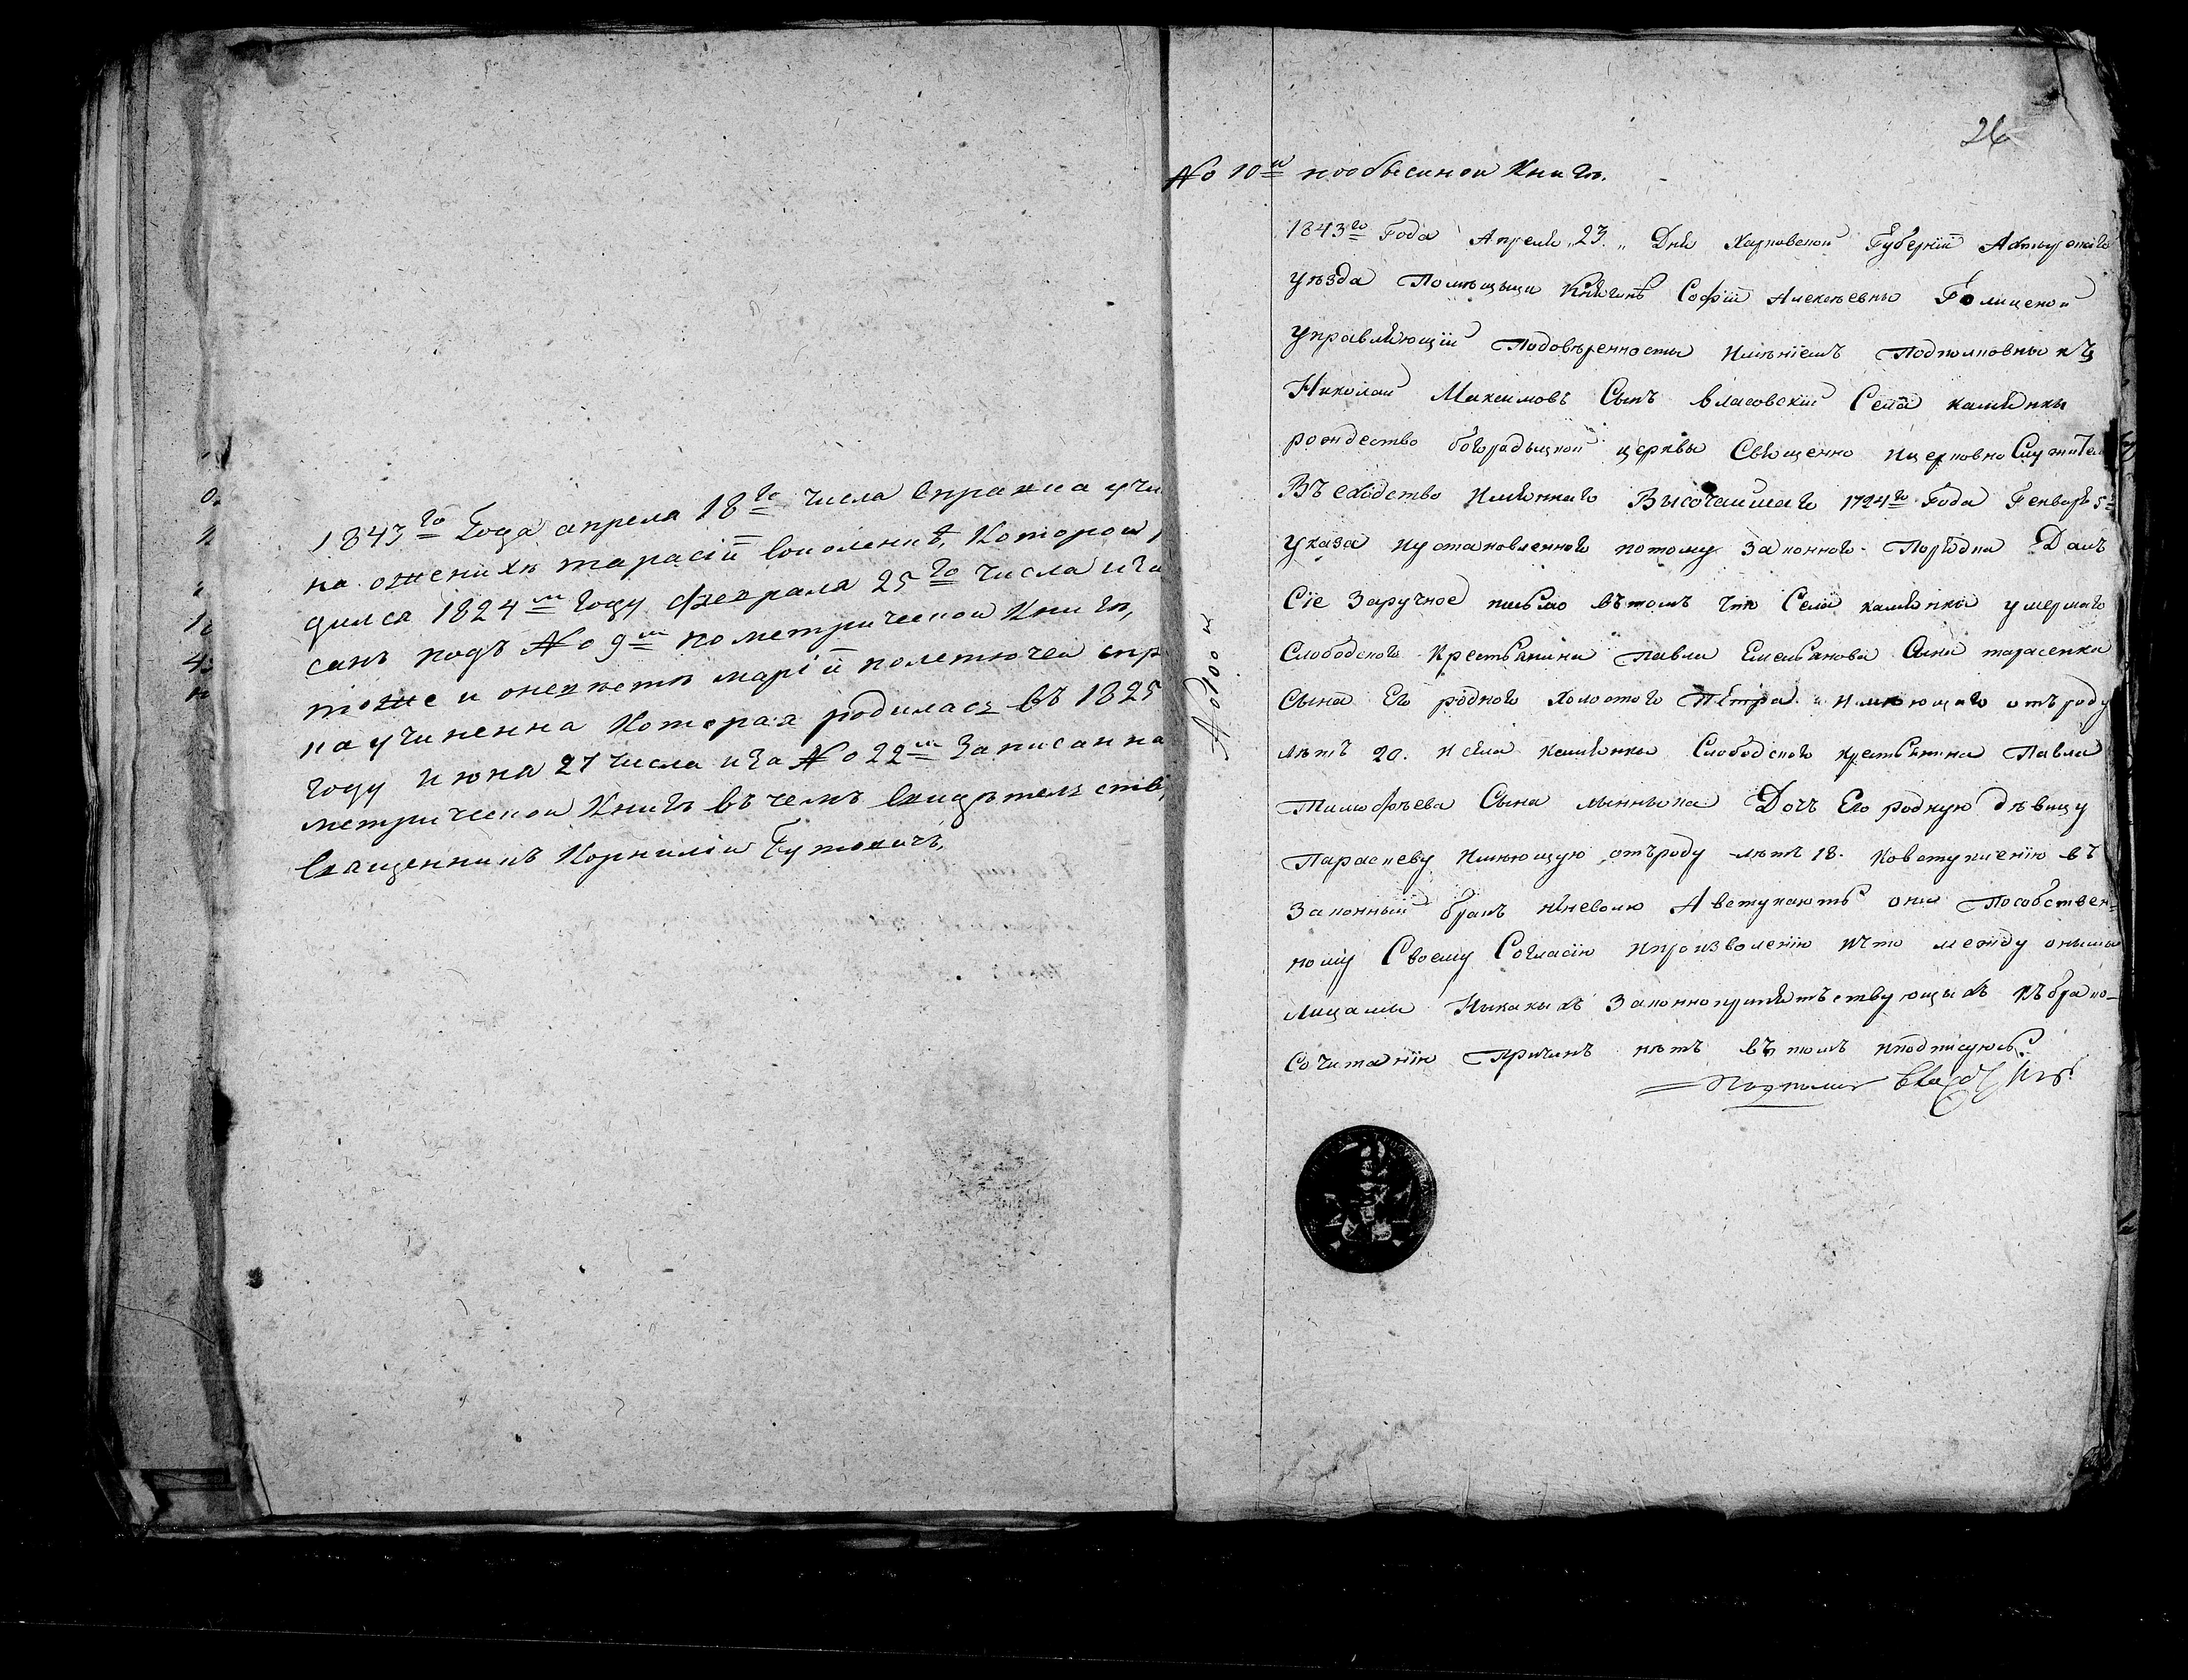 1843го Года апреля 18го числа справка учи
на оженихѣ тарасіи соколенкѣ, Которой р
дился 1824м Году февраля 25го числа иза
санъ подъ № 9м пометрической Книгѣ,
тоже и оневѣстѣ маріи полетючей спр
ка учиненна Которая родилась въ 1825
году июня 27 числа иза № 22м Записанна
метрической Книгѣ въ чемъ свидѣтельств
Священникъ Корнилій Бутовичъ,
26
№ 10й пообыскной Книгѣ.
1843го Года Апреля „23„ Дня Харковской Губерніи Ахтырскаго
уѣзда Помѣщицы Княгинѣ Софіи Алексѣевны Голицыной
управляющій Подовѣренносты имѣніемъ Подполковныкъ
Николай Максимовъ Сынъ власовскій Села камянки
рождество богородыцкой церквы Священно ицерковно Служител
Въ сходство Имяннаго Высочайшаго 1724го Года Генваря 5
указа иустановленнаго потому Законнаго Порядка Далъ
Сіе Заручное письмо вътомъ что Села камянки умершаго
Слободского Крестьянина Павла Емельянова Сына тарасенка
Сына Его родного холостого Петра имѣющаго отъроду
лѣтъ 20. и села камянки Слободского крестьянина Павла
Тимофѣева Сына Дочь Его родную дѣвицу
Параскеву имѣющую отъроду лѣтъ 18. Ковступленію въ
Законный бракъ неневолю А вступаютъ они Пособствен=
ному Своему Согласію ипроизволенію ичто между оными
лицамы Ныкакыхъ Законнопрепятствующыхъ къбрако-
Сочитанію Причинъ нѣтъ вътомъ иподписуюсь.
№ 10й